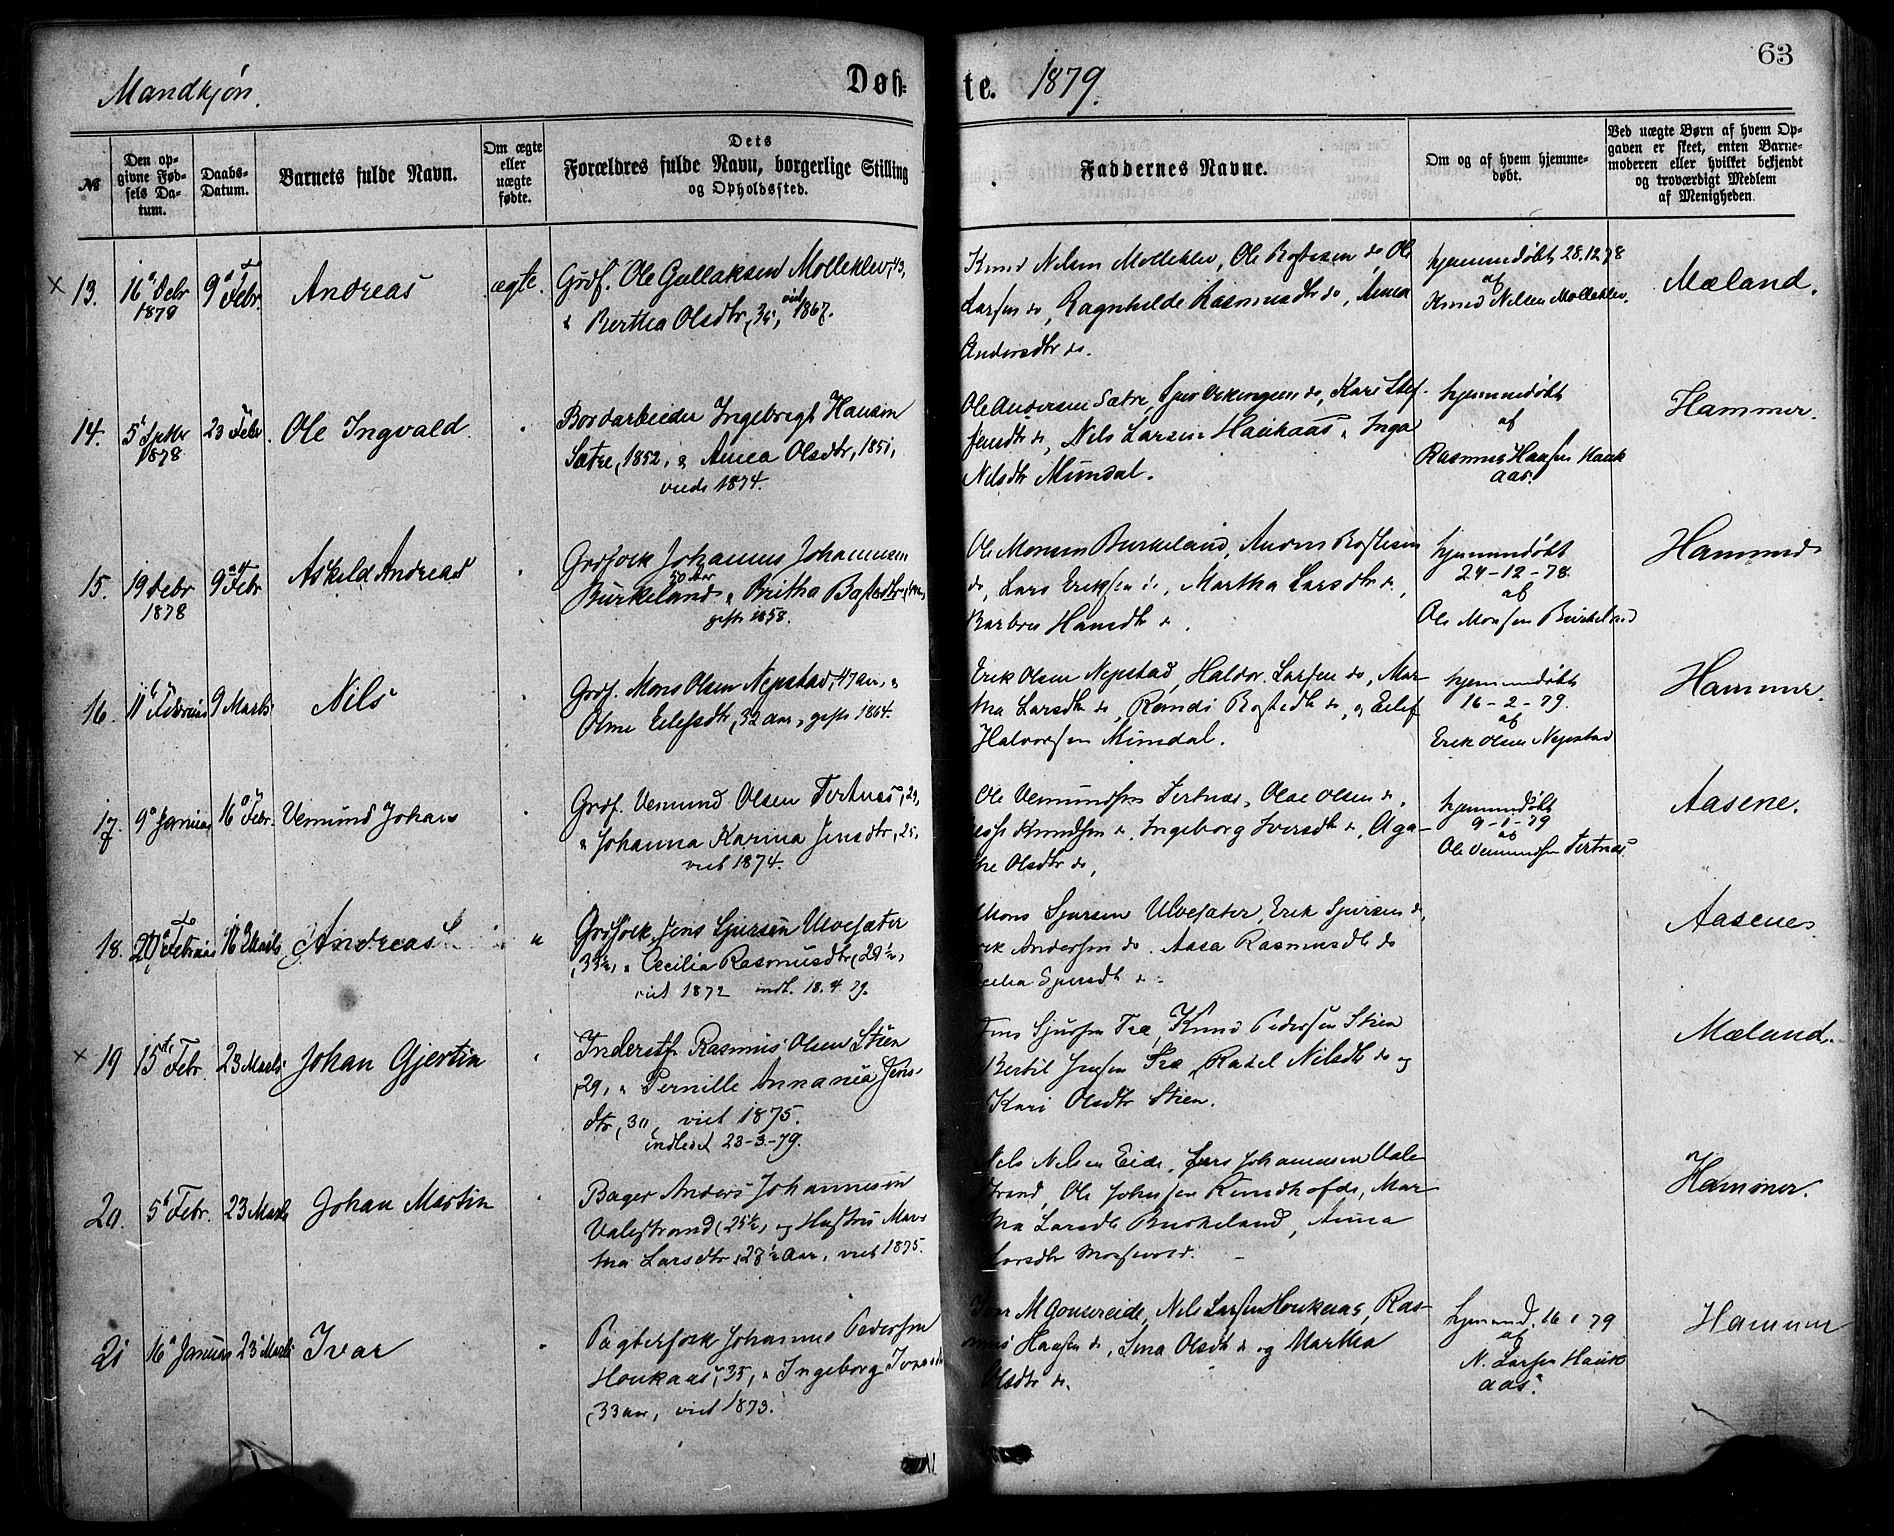 63
Mandkjøn.
Døb-
te. 1879.
№
Den op-
givne Fød-
sels Da-
tum.
Daabs-
Datum.
Barnets fulde Navn.
Om ægte
eller
uægte
fødte.
Dets
Forældres fulde Navn, borgerlige Stilling
og Opholdssted.
Faddernes Navne.
Om og af hvem hjemme-
døbt.
Ved uægte Børn af hvem Op-
gaven er skeet, enten Barne-
moderen eller hvilket bekjendt
og troværdigt Medlem
af Menigheden.
× 13.
16 Debr
1879
9 Febr.
Andreas
ægte.
Grdf. Ole Gullaksen Molleklev, 43,
Bertha Olsdtr, 35, viet 1867.
Knud Nilsen Molleklev, Ole do Ole
Larsen do, Ragnhilde Rasmusdtr do, Anna
Andersdtr do.
hjemmedøbt 28.12.78
af
Knud Nilsen Molleklev.
Mæland.
14.
5 Sptbr
1878
23 Febr.
Ole Ingvald
Bordarbeider Ingebregt Hansen
Sætre, 1852, & Anna Olsdtr, 1851,
viede 1874.
Ole Andersen Sætre, do, Kari Stef-
fensdtr do, Nils Larsen Haukaas, Inga
Nilsdtr Mundal.
hjemmedøbt
af
Rasmus Hansen Hauk
aas.
Hammer.
15.
19 Debr
1878
9 Febr
Askild Andreas
Grdfolk Johannes Johannesen
Burkeland 50 Aar Britha
gifte 1858.
Ole Monsen Burkeland, Anders
do, Lars Eriksen do, Martha Larsdtr do,
Barbro Hansdtr do.
hjemmedøbt
24-12-78.
af
Ole Monsen Birkeland
Hammer
16.
11 Februar
9 Marts
Nils
Grdf. Mons Olsen Nepstad, 47 aar, &
Eilefsdtr, 32 aar, gifte 1864.
Erik Olsen Nepstad, Haldor Larsen do, Mar-
tha Larsdtr do, Randi do, og Eilef
Halvorsen Mundal.
hjemmedøbt
16-2-79.
af
Erik Olsen Nepstad
Hammer.
17.
9 Januar
16 Febr.
Vemund Johan
Grdf. Vemund Olsen Tertnæs, 29,
Johanna Karina Jensdtr, 25,
viet 1874.
Ole Vemundsen Tertnæs, Olai Olsen do,
Knudsen do, Ingeborg Iversdtr do, Aga-
the Olsdtr do,
hjemmedøbt
9-1-79
af
Ole Vemundsen Tertnæs
Aasene.
18.
20 Februar
16 Marts
Andreas
"
Grdfolk Jens Sjursen Ulvesæter
33½, Cecilia Rasmusdtr, 28½,
viet 1872 indl. 18.4.79.
Mons Sjursen Ulvesæter, Erik Sjursen do,
Erik Andersen do, Aasa Rasmusdtr do
Cecilia Sjursdtr do.
Aasene.
× 19
15de Febr.
23 Marts.
Johan Gjertin
Inderstf. Rasmus Olsen Stien
29, Pernille Annania Jens-
dtr, 30, viet 1875.
indledet 23-3-79.
Jens Sjursen Træ, Knud Pedersen Stien
Bertil Jensen Træ, Rakel Nilsdtr do og
Kari Olsdtr Stien.
Mæland.
20.
5 Febr.
23 Marts
Johan Martin
Bager Anders Johannesen
Valestrand (25½, og Hustru Mar-
tha Larsdtr, 27½ Aar, viet 1875.
Nels Nilsen Eide, Lars Johannesen Vale-
strand, Ole Johnsen do, Mar-
tha Larsdtr Burkeland, Anna
Larsdtr
Hammer.
21
16 Januar
23 Marts
Ivar
Pagterfolk Johannes Pedersen
Houkaas, 35, Ingeborg Iversdtr
33 aar, viet 1873.
Iver M Gonsereide, Nils Larsen Houkaas, Ras-
mus Hansen do, Sina Olsdtr do og Martha
Olsdtr do.
hjemmed. 16 1 79
af
N. Larsen Hauk
aas.
Hammer